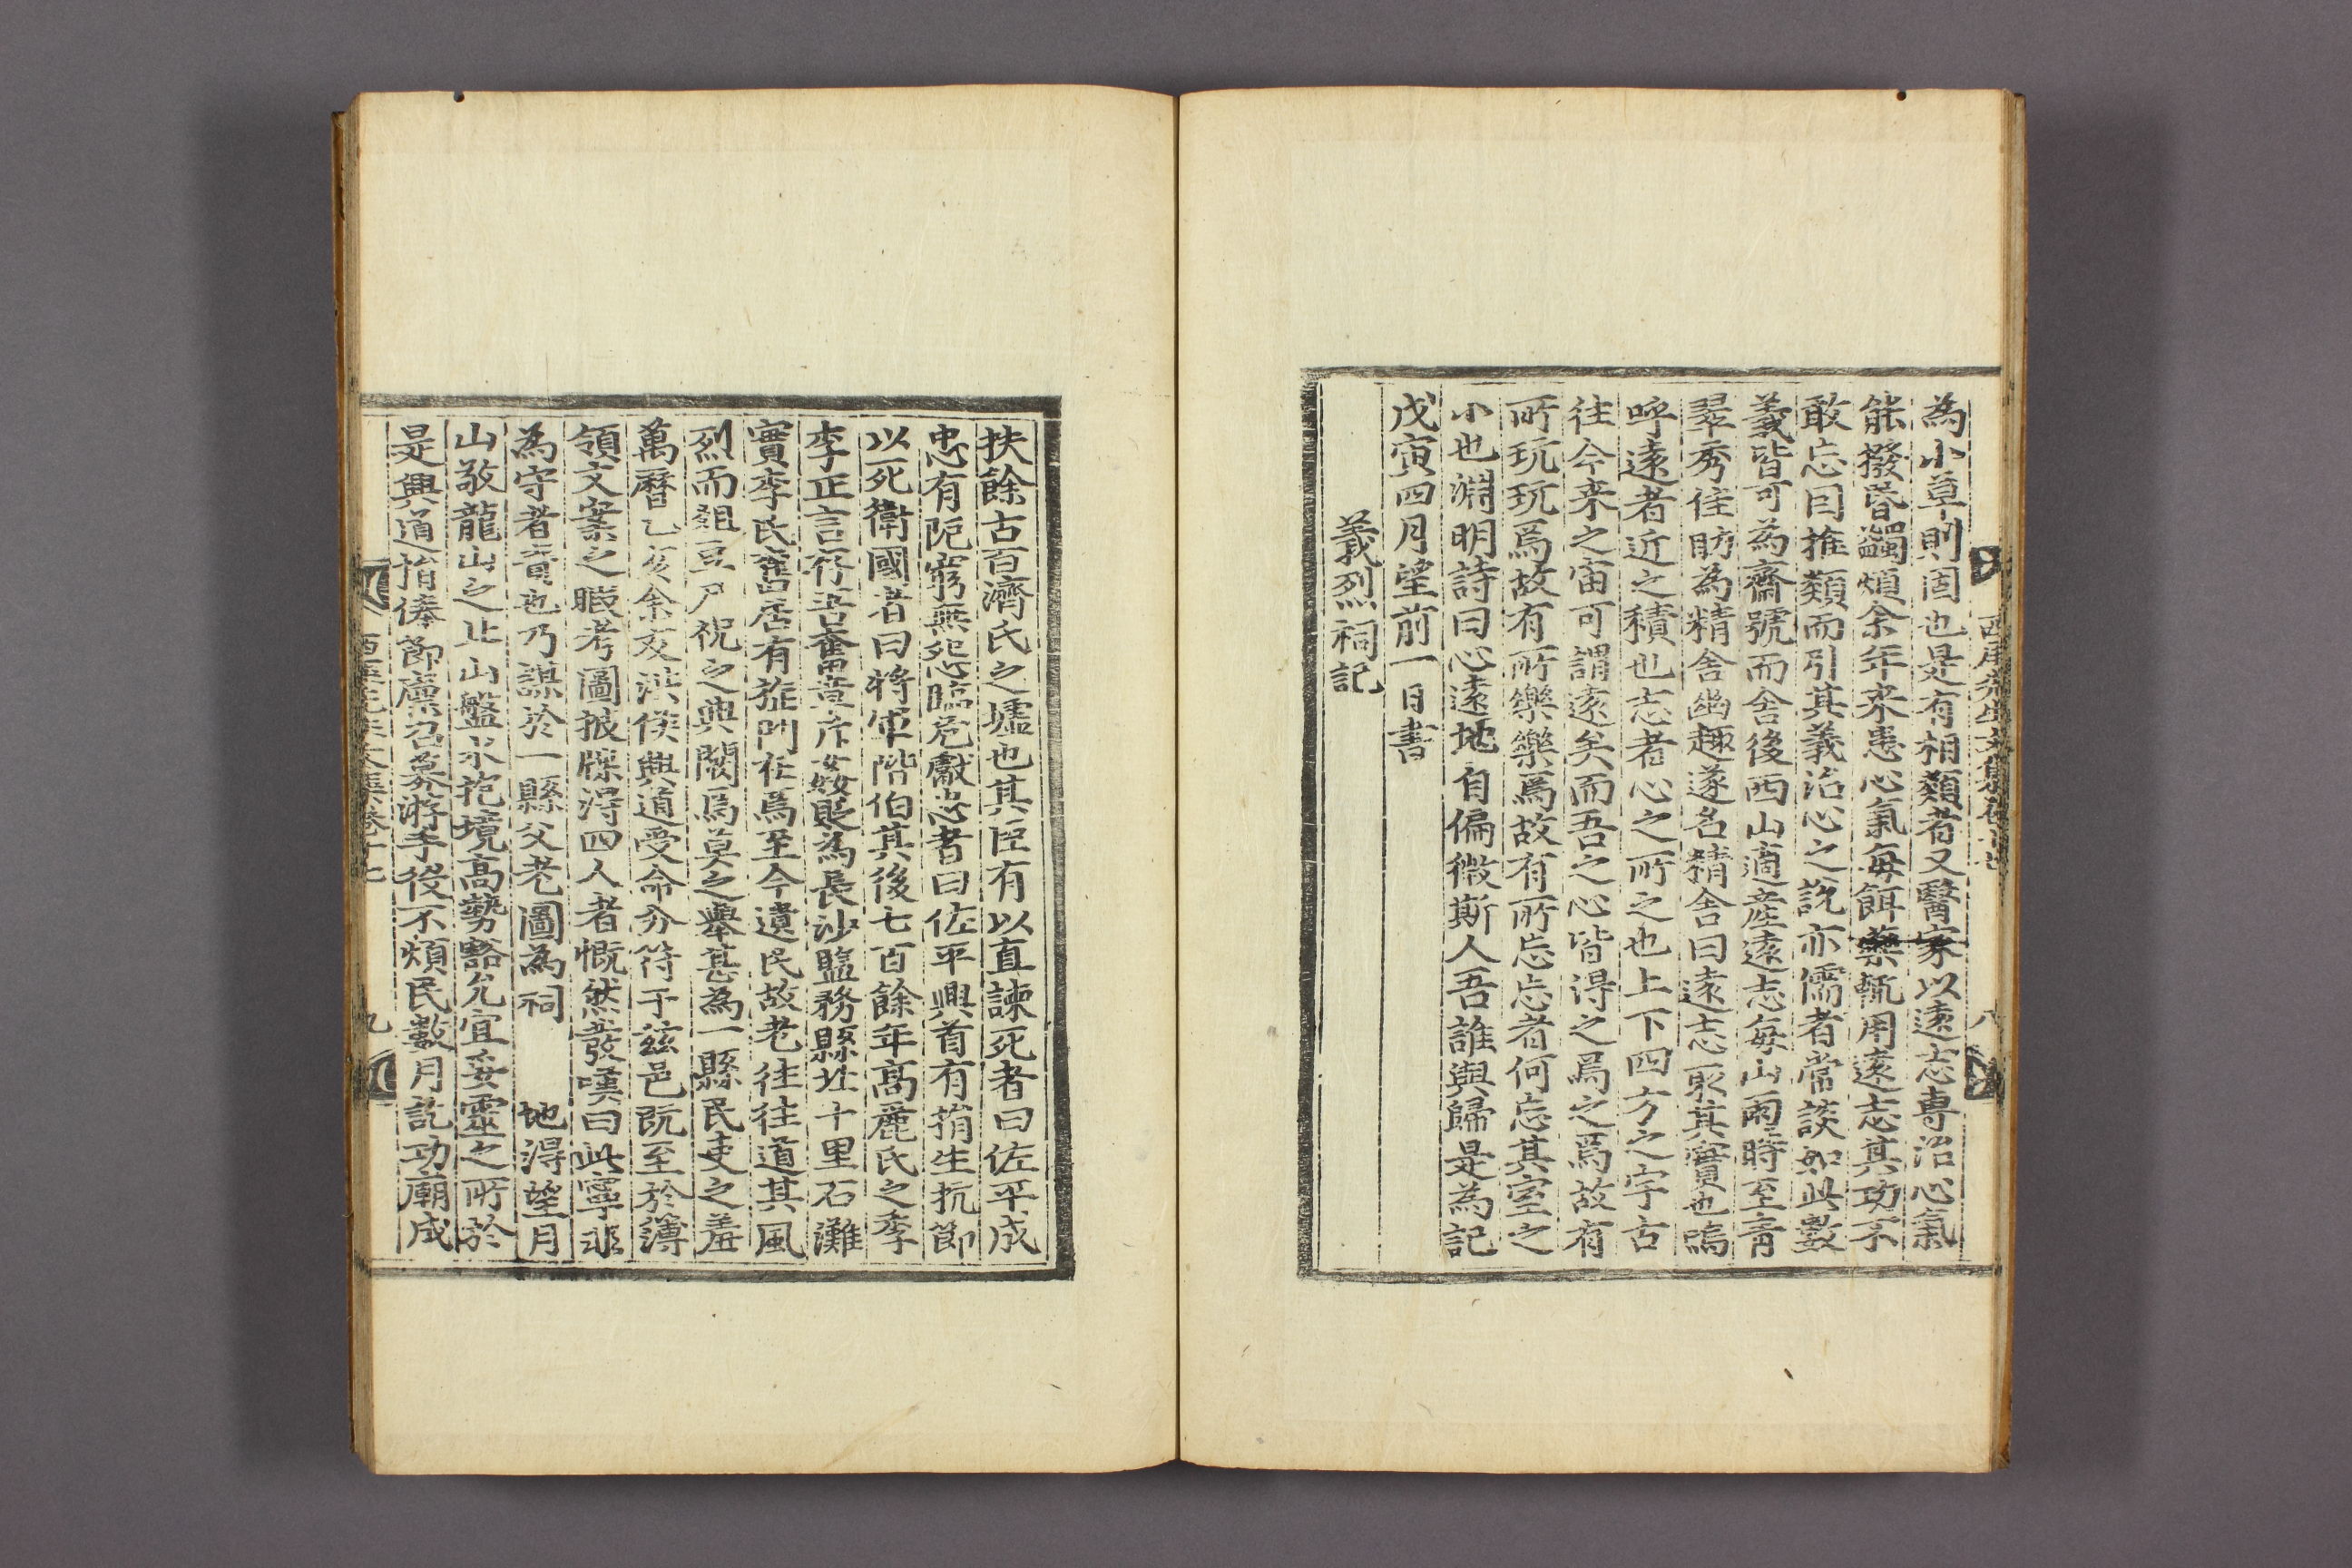 西厓先生文集卷十七
八
為小草則固也是有相類者又醫家以遠志專治心氣
能撥昏蠲煩余年來患心氣每餌藥輒用遠志其功不
敢忘因推類而引其義治心之說亦儒者常談如此數
義皆可為齋號而舍後西山適產遠志每山雨時至靑
翠秀佳盼為精舍幽趣遂名精舍曰遠志取其實也嗚
呼遠者近之積也志者心之所之也上下四方之宇古
往今來之宙可謂遠矣而吾之心皆得之焉之焉故有
所玩玩焉故有所樂樂焉故有所忘忘者何忘其室之
小也淵明詩曰心遠地自偏微斯人吾誰與歸是為記
戊寅四月望前一日書
義烈祠記
扶餘古百濟氏之墟也其臣有以直諫死者曰佐平成
忠有阨窮無怨臨危獻忠者曰佐平興首有捐生抗節
以死衛國者曰將軍階伯其後七百餘年高麗氏之季
李正言存吾奮章斥姦貶為長沙監務縣址十里石灘
實李氏舊居有旌門在焉至今遺民故老往往道其風
烈而俎豆尸祝之典闕焉莫之擧甚為一縣民吏之羞
萬曆乙亥余友洪侯興道受命分符于茲邑旣至於簿
領文案之暇考圖撿牒得四人者慨然發嘆曰此寧非
為守者責也乃謀於一縣父老圖為祠 地得望月
山敬龍山之止山盤水抱境高勢豁允宜妥靈之所於
是興道捐俸節廩召募游手役不煩民數月訖功廟成
西厓先生文集卷十七
九